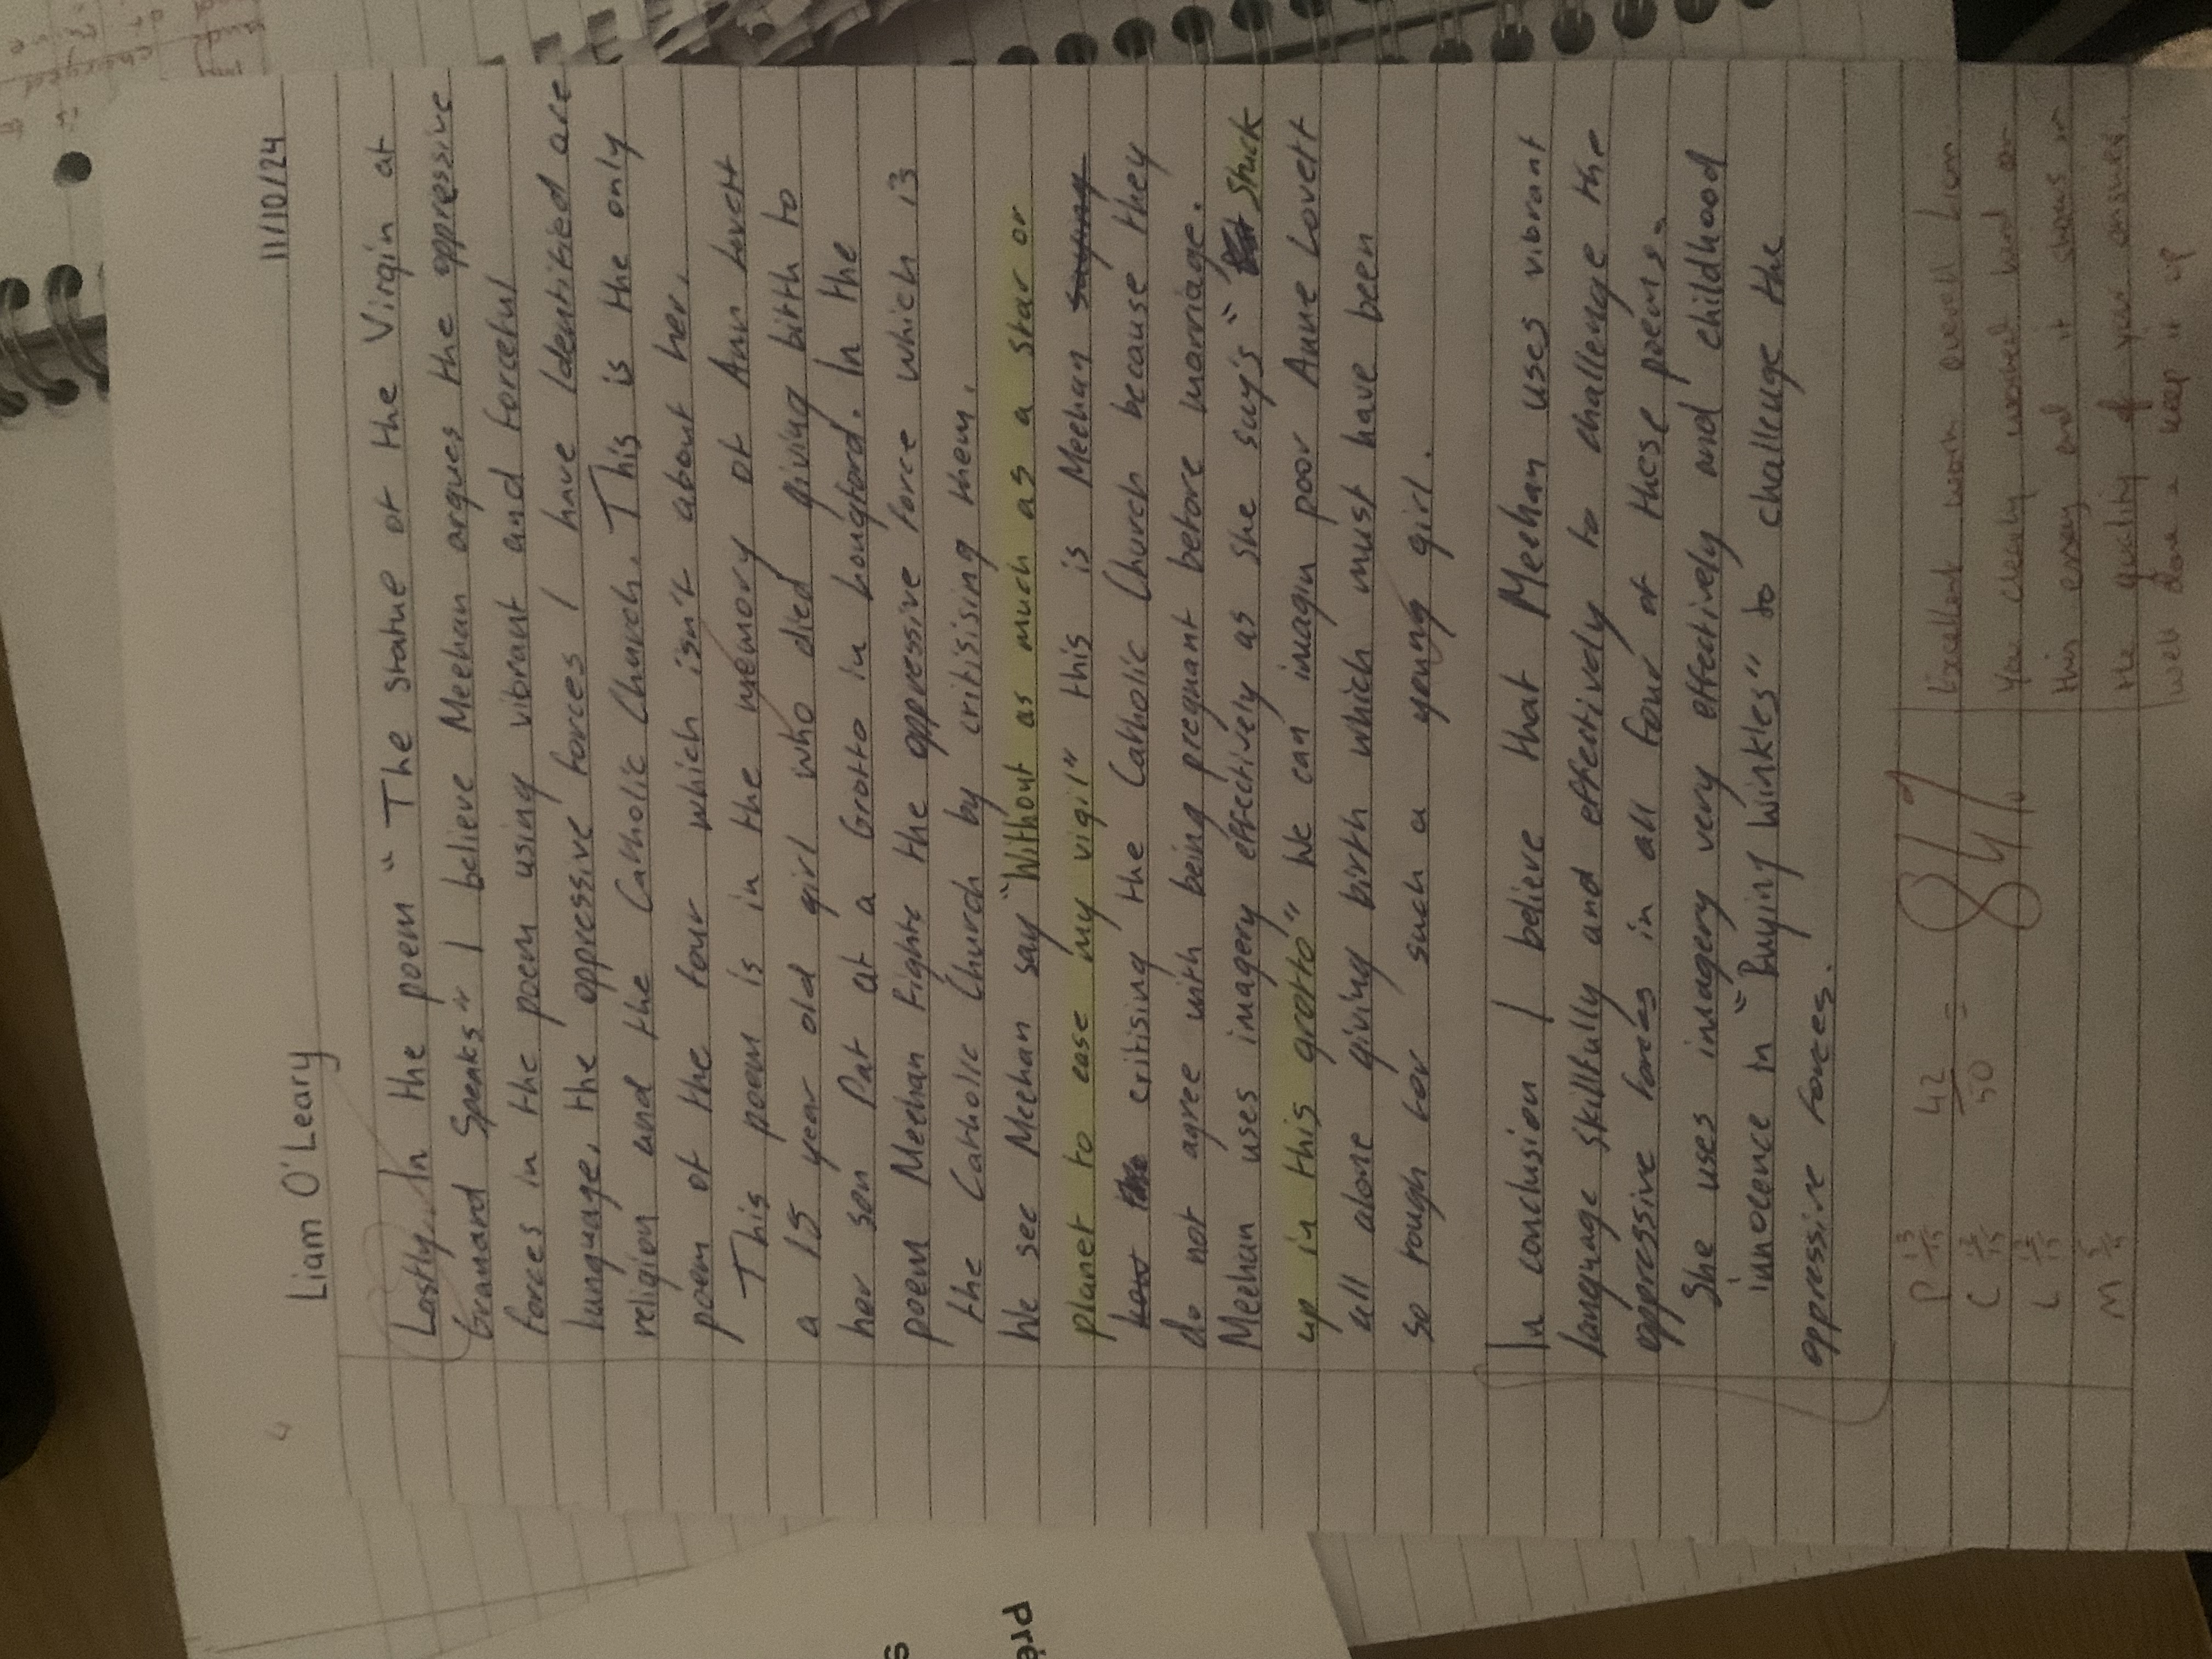 4
Liam O'Leary 11/10/24
Lastly. In the poem " The statue of the Virgin at
Granard Speaks" I believe Meehan argues the oppressive
forces in the poem using vibrant and forceful
language, the oppressive forces I have identified are
religion and the Catholic Church. This is the only
poem of the four which isn't about her.
This poem is in the memory of Ann Lovett
a 15 year old girl who died giving birth to
her son Pat at a Grotto in Longford. In the
poem Meehan fights the oppressive force which is
the Catholic Church by critisising them.
We see Meehan say "Without as much as a star or
planet to ease my vigil" this is Meehan saying
how the critising the Catholic Church because they
do not agree with being pregnant before marriage.
Meehan uses imagery effectively as she say's " Stuck
up in this grotto" We can imagin poor Anne Lovett
all alone giving birth which must have been
so rough for such a young girl.
In conclusion I believe that Meehan uses vibrant
language skillfully and effectively to challenge the
oppressive forces in all four of these poems.
She uses imagery very effectively and childhood
innocence in "Buying Winkles" to challenge the
oppressive forces.
P 13/15 42/50 = 84%
C 12/15
L 12/15
M 5/5
Excellent work overall Liam
You clearly worked hard on
this essay and it shows in
the quality of your answer.
Well done & keep it up